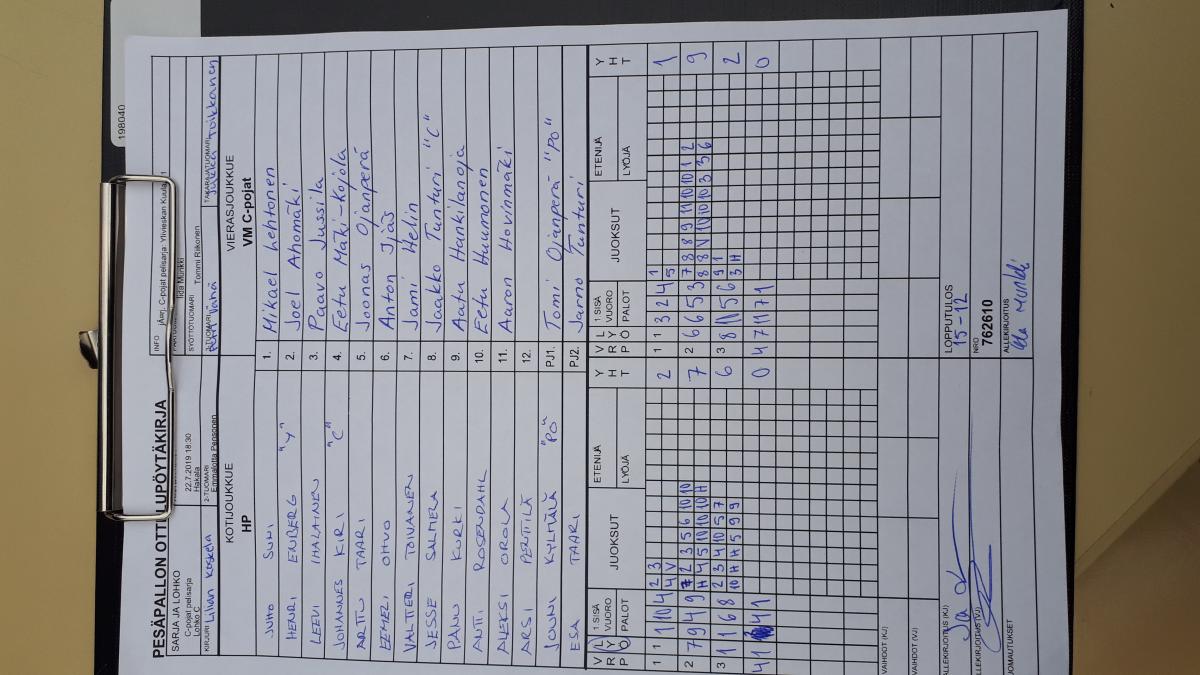 198040
PESÄPALLON OTTELUPÖYTÄKIRJA
SARJA JA LOHKO
C-pojat pelisarja
Lohko C
22.7.2019 18:30
Hakala
INFO
C-pojat pelisarja: Ylivieskan Kuula
Iida Munkki
KIRJURI Lilian Koskela
2-TUOMARI
Emmalotta Pensonen
SYÖTTÖTUOMARI
Tommi Riikonen
3-TUOMARI
TAKARAJATUOMARI
Jukka Toikkanen
KOTIJOUKKUE
HP
VIERASJOUKKUE
VM C-pojat
JUHO SUNI 1. Mikael Lehtonen
HENRI ENBERG "Y" 2. Joel Ahomäki
LEEVI IHALAINEN 3. Paavo Jussila
JOHANNES KIRI "C" 4. Eetu Mäki-Kojola
ARTTU TAARI 5. Joonas Ojanperä
EEMELI OHVO 6. Anton Ijäs
VALTTERI TOIVANEN 7. Jami Helin
JESSE SALMELA 8. Jaakko Tunturi "C"
PANU KURKI 9. Aatu Hankilanoja
ANTI ROSENDAHL 10. Eetu Huumonen
ALEKSI OROLA 11. Aaron Hovinmäki
ARSI PERTTILÄ 12.
JOUNI KYLMÄLÄ "PO" PJ1. Tomi Ojanperä "PO"
ESA TAARI PJ2. Jarmo Tunturi
V R P L Y O 1 SISÄ VUORO PALOT JUOKSUT ETENIJÄ LYÖJÄ Y H T V R P L Y O 1 SISÄ VUORO PALOT JUOKSUT ETENIJÄ LYÖJÄ Y H T
1 1 1 1 10 4 2 3 2 1 1 3 2 4 1 1
4 V 5
2 7 9 4 9 7 2 3 5 6 10 10 7 2 6 6 5 3 7 8 8 9 11 10 10 1 2 9
H 4 5 10 10 10 H 8 8 V 10 10 10 3 3 6
3 1 1 6 8 2 3 4 10 5 7 6 3 8 11 5 6 9 1 2
10 H H 5 9 9 3 H
4 1 41 0 4 7 11 7 1 0
VAIHDOT (KJ)
VAIHDOT (VJ)
LOPPUTULOS
15-12
ALLEKIRJOITUS (KJ)
ALLEKIRJOITUS (VJ)
NRO
762610
HUOMAUTUKSET
ALLEKIRJOITUS
Iida Munkki